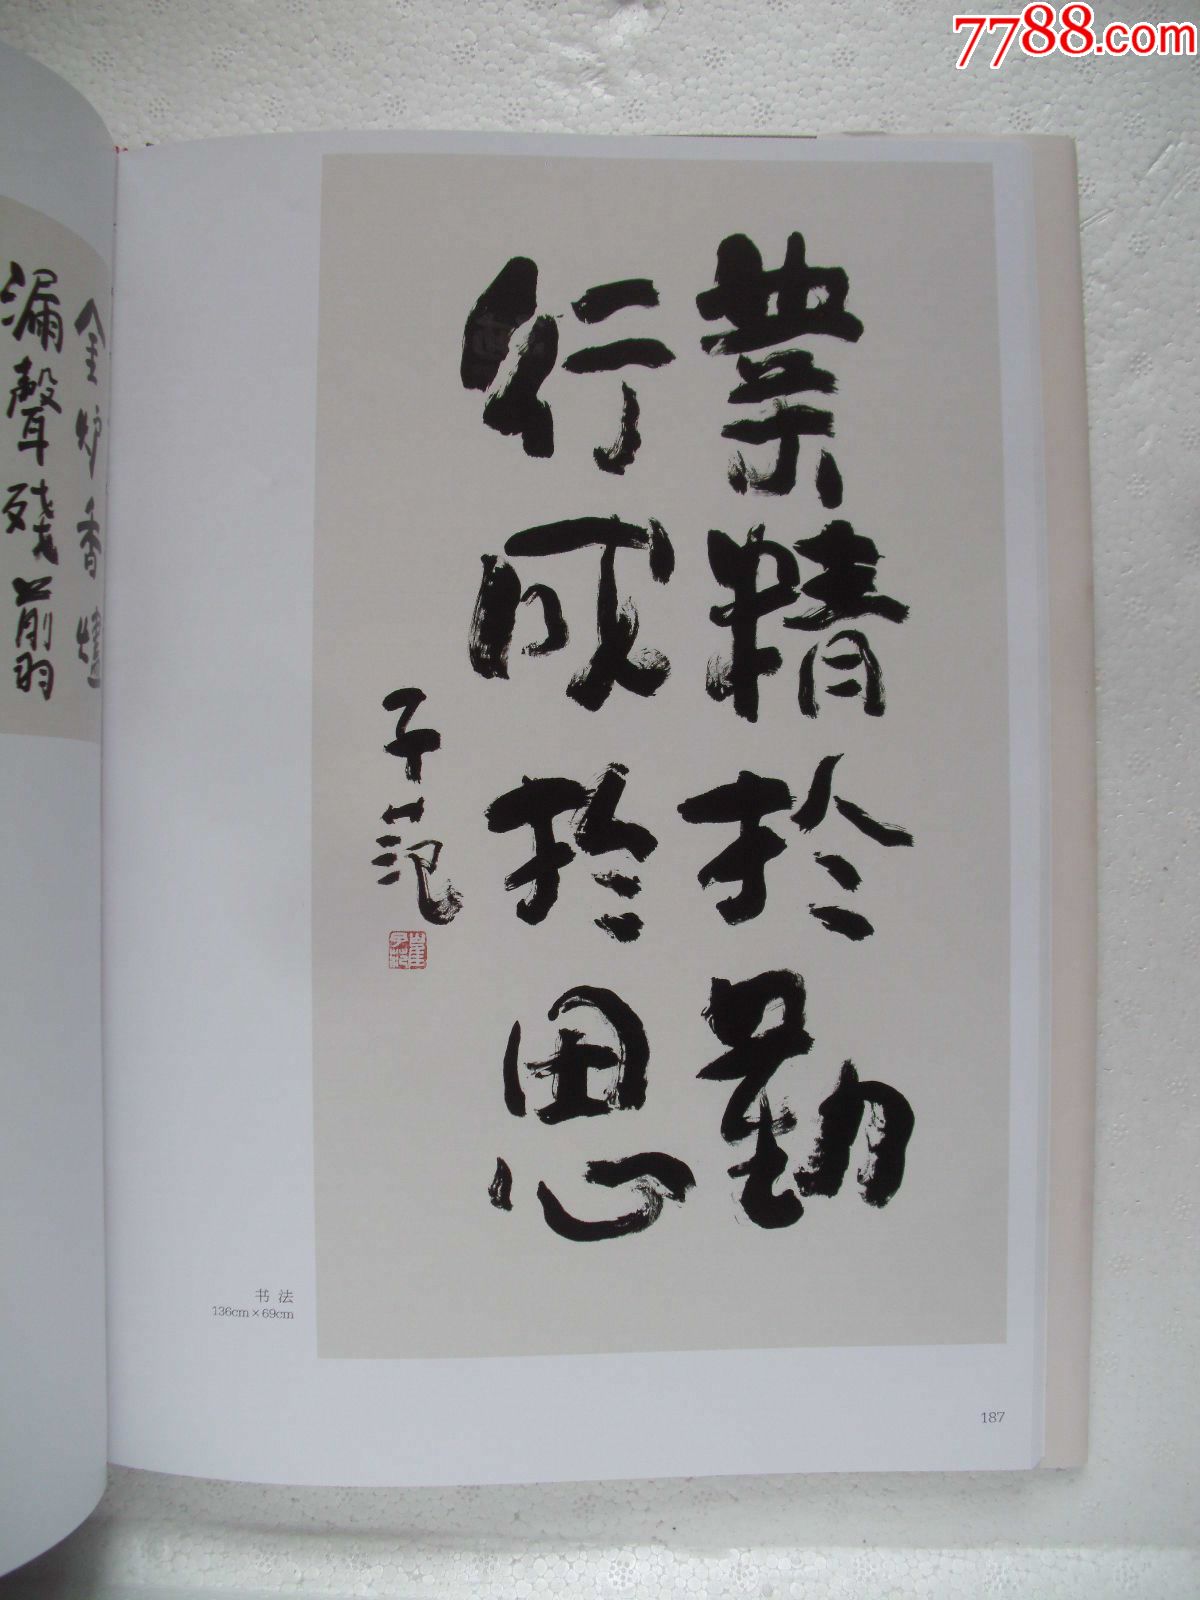 7788.com
業精於勤
行成於思
子范
崔子范
金炉香燼
漏聲殘翦
书法
136cm×69cm
187